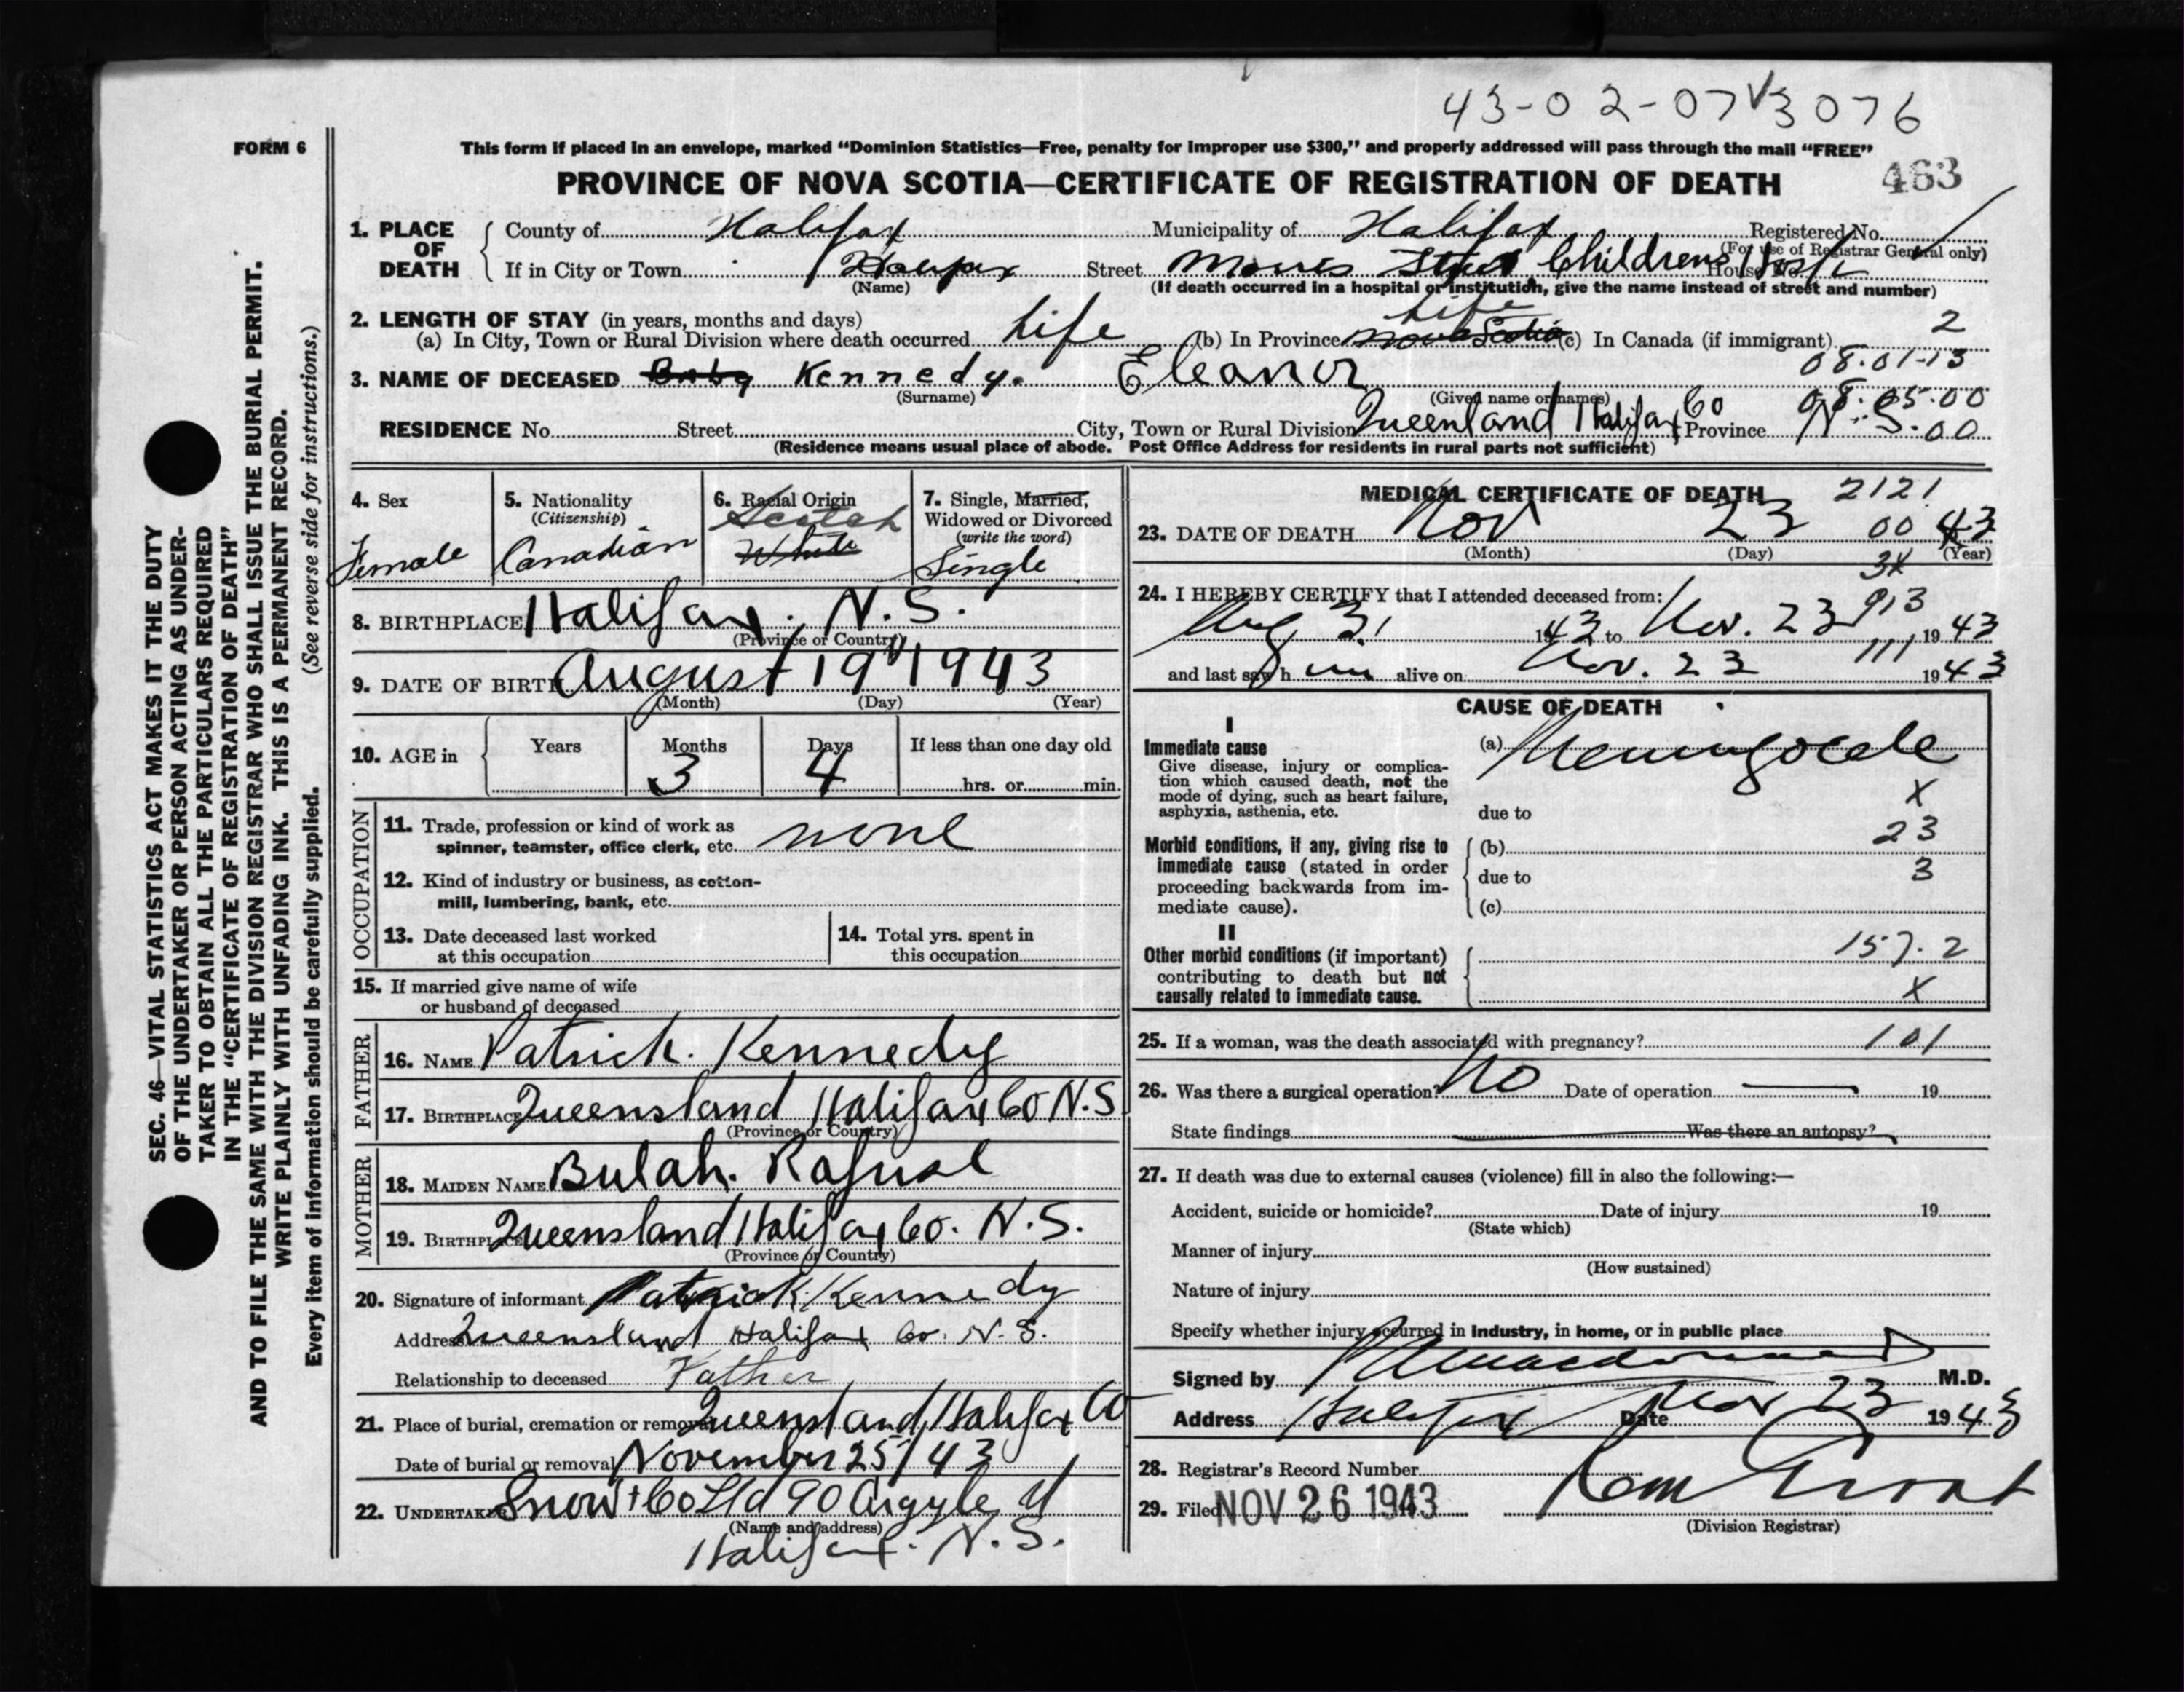 43-02-07 V 3076
FORM 6
This form if placed in an envelope, marked “Dominion Statistics—Free, penalty for improper use $300,” and properly addressed will pass through the mail “FREE”
PROVINCE OF NOVA SCOTIA—CERTIFICATE OF REGISTRATION OF DEATH 463
1. PLACE OF DEATH
County of Halifax Municipality of Halifax Registered No.
(For use of Registrar General only)
If in City or Town Halifax Street Morris Street Childrens Hosp. House No.
(Name) (If death occurred in a hospital or institution, give the name instead of street and number)
2. LENGTH OF STAY (in years, months and days)
Life 2
(a) In City, Town or Rural Division where death occurred Life (b) In Province Nova Scotia (c) In Canada (if immigrant)
08.01-13
3. NAME OF DECEASED Baby Kennedy. Eleanor
(Surname) (Given name or names) 08.05.00
RESIDENCE No. Street City, Town or Rural Division Queenland Halifax Co Province N.S. 00
(Residence means usual place of abode. Post Office Address for residents in rural parts not sufficient)
4. Sex
Female
5. Nationality
(Citizenship)
Canadian
6. Racial Origin
Scotch
White
7. Single, Married,
Widowed or Divorced
(write the word)
Single
8. BIRTHPLACE Halifax. N.S.
(Province or Country)
9. DATE OF BIRTH August 19 1943
(Month) (Day) (Year)
10. AGE in
Years Months Days If less than one day old
3 4 hrs. or min.
OCCUPATION
11. Trade, profession or kind of work as
spinner, teamster, office clerk, etc. none
12. Kind of industry or business, as cotton-
mill, lumbering, bank, etc.
13. Date deceased last worked
at this occupation
14. Total yrs. spent in
this occupation
15. If married give name of wife
or husband of deceased
FATHER
16. NAME Patrick. Kennedy
17. BIRTHPLACE Queensland Halifax Co N.S
(Province or Country)
MOTHER
18. MAIDEN NAME Bulah. Rafuse
19. BIRTHPLACE Queensland Halifax Co. N.S.
(Province or Country)
20. Signature of informant Patrick Kennedy
Address Queensland Halifax Co. N.S.
Relationship to deceased Father
21. Place of burial, cremation or removal Queensland, Halifax Co
Date of burial or removal November 25/43
22. UNDERTAKER Snow + Co Ltd 90 Argyle St
(Name and address)
Halifax. N.S.
MEDICAL CERTIFICATE OF DEATH 2121
23. DATE OF DEATH Nov 23 00 43
(Month) (Day) (Year)
3X
24. I HEREBY CERTIFY that I attended deceased from: 913
Aug 31 1943 to Nov. 23 1943
111
and last saw h im alive on Nov. 23 1943
CAUSE OF DEATH
I
Immediate cause
Give disease, injury or complica-
tion which caused death, not the
mode of dying, such as heart failure,
asphyxia, asthenia, etc.
(a) Meningocele
X
due to
Morbid conditions, if any, giving rise to
immediate cause (stated in order
proceeding backwards from im-
mediate cause).
23
(b)
due to 3
(c)
II
Other morbid conditions (if important)
contributing to death but not
causally related to immediate cause.
157.2
X
25. If a woman, was the death associated with pregnancy? 101
26. Was there a surgical operation? No Date of operation 19
State findings Was there an autopsy?
27. If death was due to external causes (violence) fill in also the following:—
Accident, suicide or homicide? Date of injury 19
(State which)
Manner of injury
(How sustained)
Nature of injury
Specify whether injury occurred in industry, in home, or in public place
Signed by M.D.
Address Halifax Date Nov 23 1943
28. Registrar's Record Number
29. Filed NOV 26 1943
(Division Registrar)
SEC. 46—VITAL STATISTICS ACT MAKES IT THE DUTY
OF THE UNDERTAKER OR PERSON ACTING AS UNDER-
TAKER TO OBTAIN ALL THE PARTICULARS REQUIRED
IN THE “CERTIFICATE OF REGISTRATION OF DEATH”
AND TO FILE THE SAME WITH THE DIVISION REGISTRAR WHO SHALL ISSUE THE BURIAL PERMIT.
WRITE PLAINLY WITH UNFADING INK. THIS IS A PERMANENT RECORD.
Every item of information should be carefully supplied. (See reverse side for instructions.)